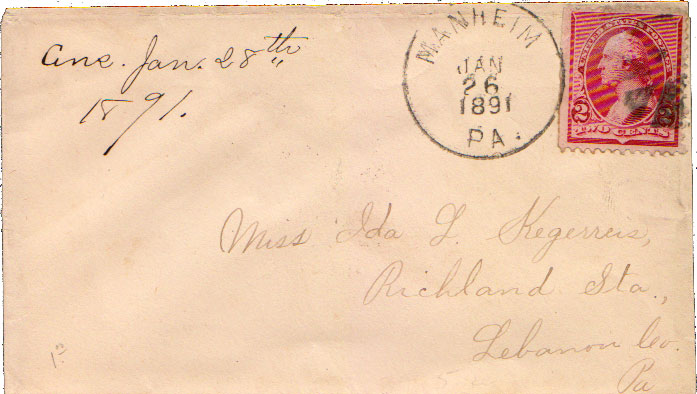 Ans. Jan. 28th
1891.
MANHEIM
JAN
26
1891
PA.
UNITED STATES POSTAGE
2 2
TWO CENTS
Miss Ida L. Kegerreis,
Richland Sta.,
Lebanon Co.
Pa